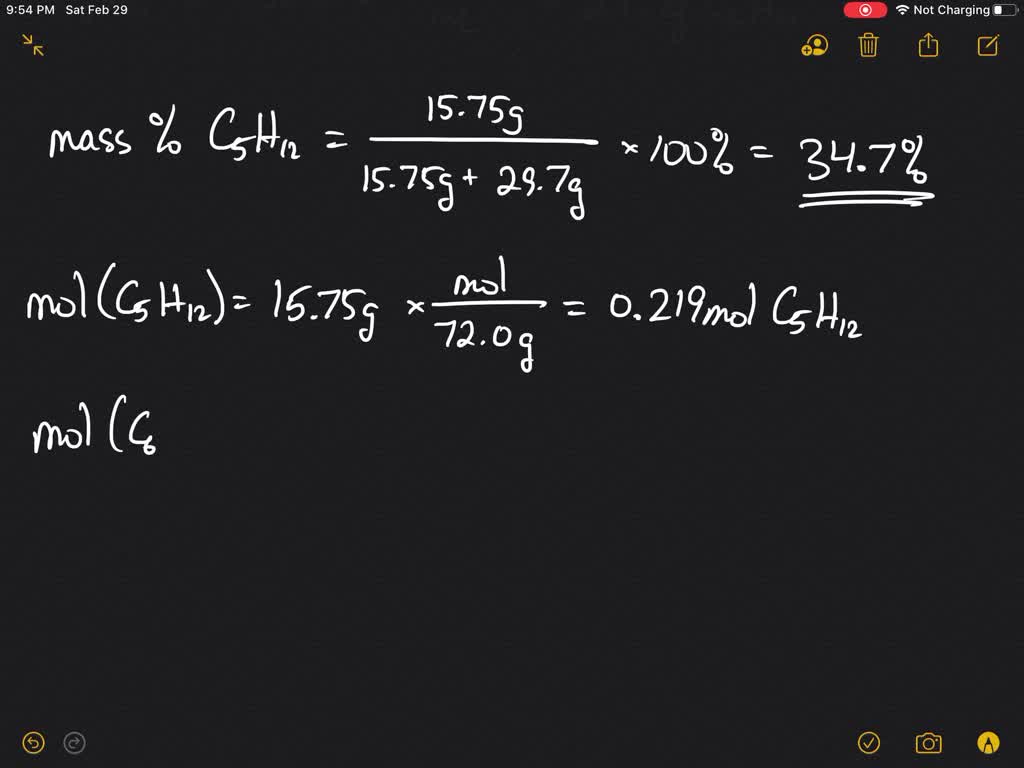 9:54 PM Sat Feb 29 Not Charging
mass % C5H12 = 15.75g / 15.75g + 29.7g × 100% = 34.7%
mol(C5H12) = 15.75g × mol / 72.0g = 0.219mol C5H12
mol (C6